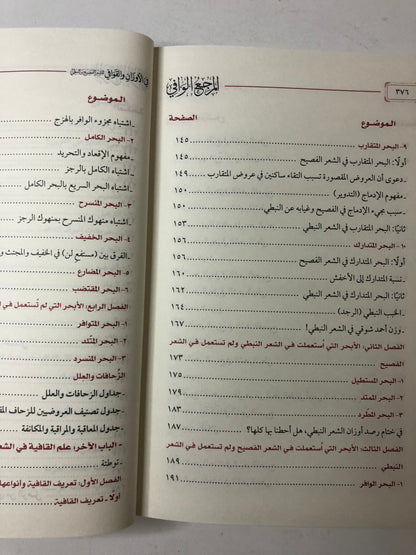 ٣٧٦
المرجع الوافي
الموضوع
الصفحة
٩- البحر المتقارب ١٤٥
أولًا: البحر المتقارب في الشعر الفصيح ١٤٥
دعوى أن العروض المقصورة تسبب التقاء ساكنين في عروض المتقارب ١٤٥
مفهوم الإدماج (التدوير) ١٥٠
سبب مجيء الإدماج في الفصيح وغيابه عن النبطي ١٥٠
ثانيًا: البحر المتقارب في الشعر النبطي ١٥٣
١٠- البحر المتدارك ١٥٦
أولًا: البحر المتدارك في الشعر الفصيح ١٥٦
نسبة المتدارك إلى الأخفش ١٦٠
ثانيًا: البحر المتدارك في الشعر النبطي ١٦٢
الخبب النبطي (الرجد) ١٦٤
وزن أحمد شوقي في الشعر النبطي! ١٦٧
الفصل الثاني: الأبحر التي استُعملت في الشعر النبطي ولم تستعمل في الشعر
الفصيح ١٧٣
١- البحر المستطيل ١٧٥
٢- البحر الممتد ١٧٩
٣- البحر المطرد ١٨٣
في ختام رصد أوزان الشعر النبطي، هل أحطنا بها كلها؟ ١٨٧
الفصل الثالث: الأبحر التي استُعملت في الشعر الفصيح ولم تستعمل في الشعر
النبطي ١٨٩
١- البحر الوافر ١٩١
في الأوزان والقوافي
الموضوع
اشتباه مجزوء الوافر بالهزج
٢- البحر الكامل
مفهوم الإقعاد والتحريد
اشتباه الكامل بالرجز
اشتباه البحر السريع بالبحر الكامل
٣- البحر المنسرح
اشتباه منهوك المنسرح بمنهوك الرجز
٤- البحر الخفيف
الفرق بين (مستفع لن) في الخفيف والمجتث و
٥- البحر المضارع
٦- البحر المقتضب
الفصل الرابع: الأبحر التي لم تُستعمل في
١- البحر المتوافر
٢- البحر المتئد
٣- البحر المنسرد
الزِّحافات والعِلل
جداول الزحافات والعلل
جدول تصنيف العروضيين للزحاف
جدول المعاقبة والمراقبة والمكانفة
- الباب الآخر: علم القافية في الشعر
توطئة
الفصل الأول: تعريف القافية وأنواعها
أولًا: تعريف القافية